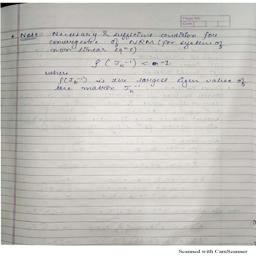 Page No.
Date
* Note: Necessary & sufficient condition for
convergence of NRM (for system of
non linear eqns)
ρ ( Jn⁻¹) < 1
where
ρ(Jn⁻¹) is the largest eigen value of
the matrix Jn⁻¹
Scanned with CamScanner